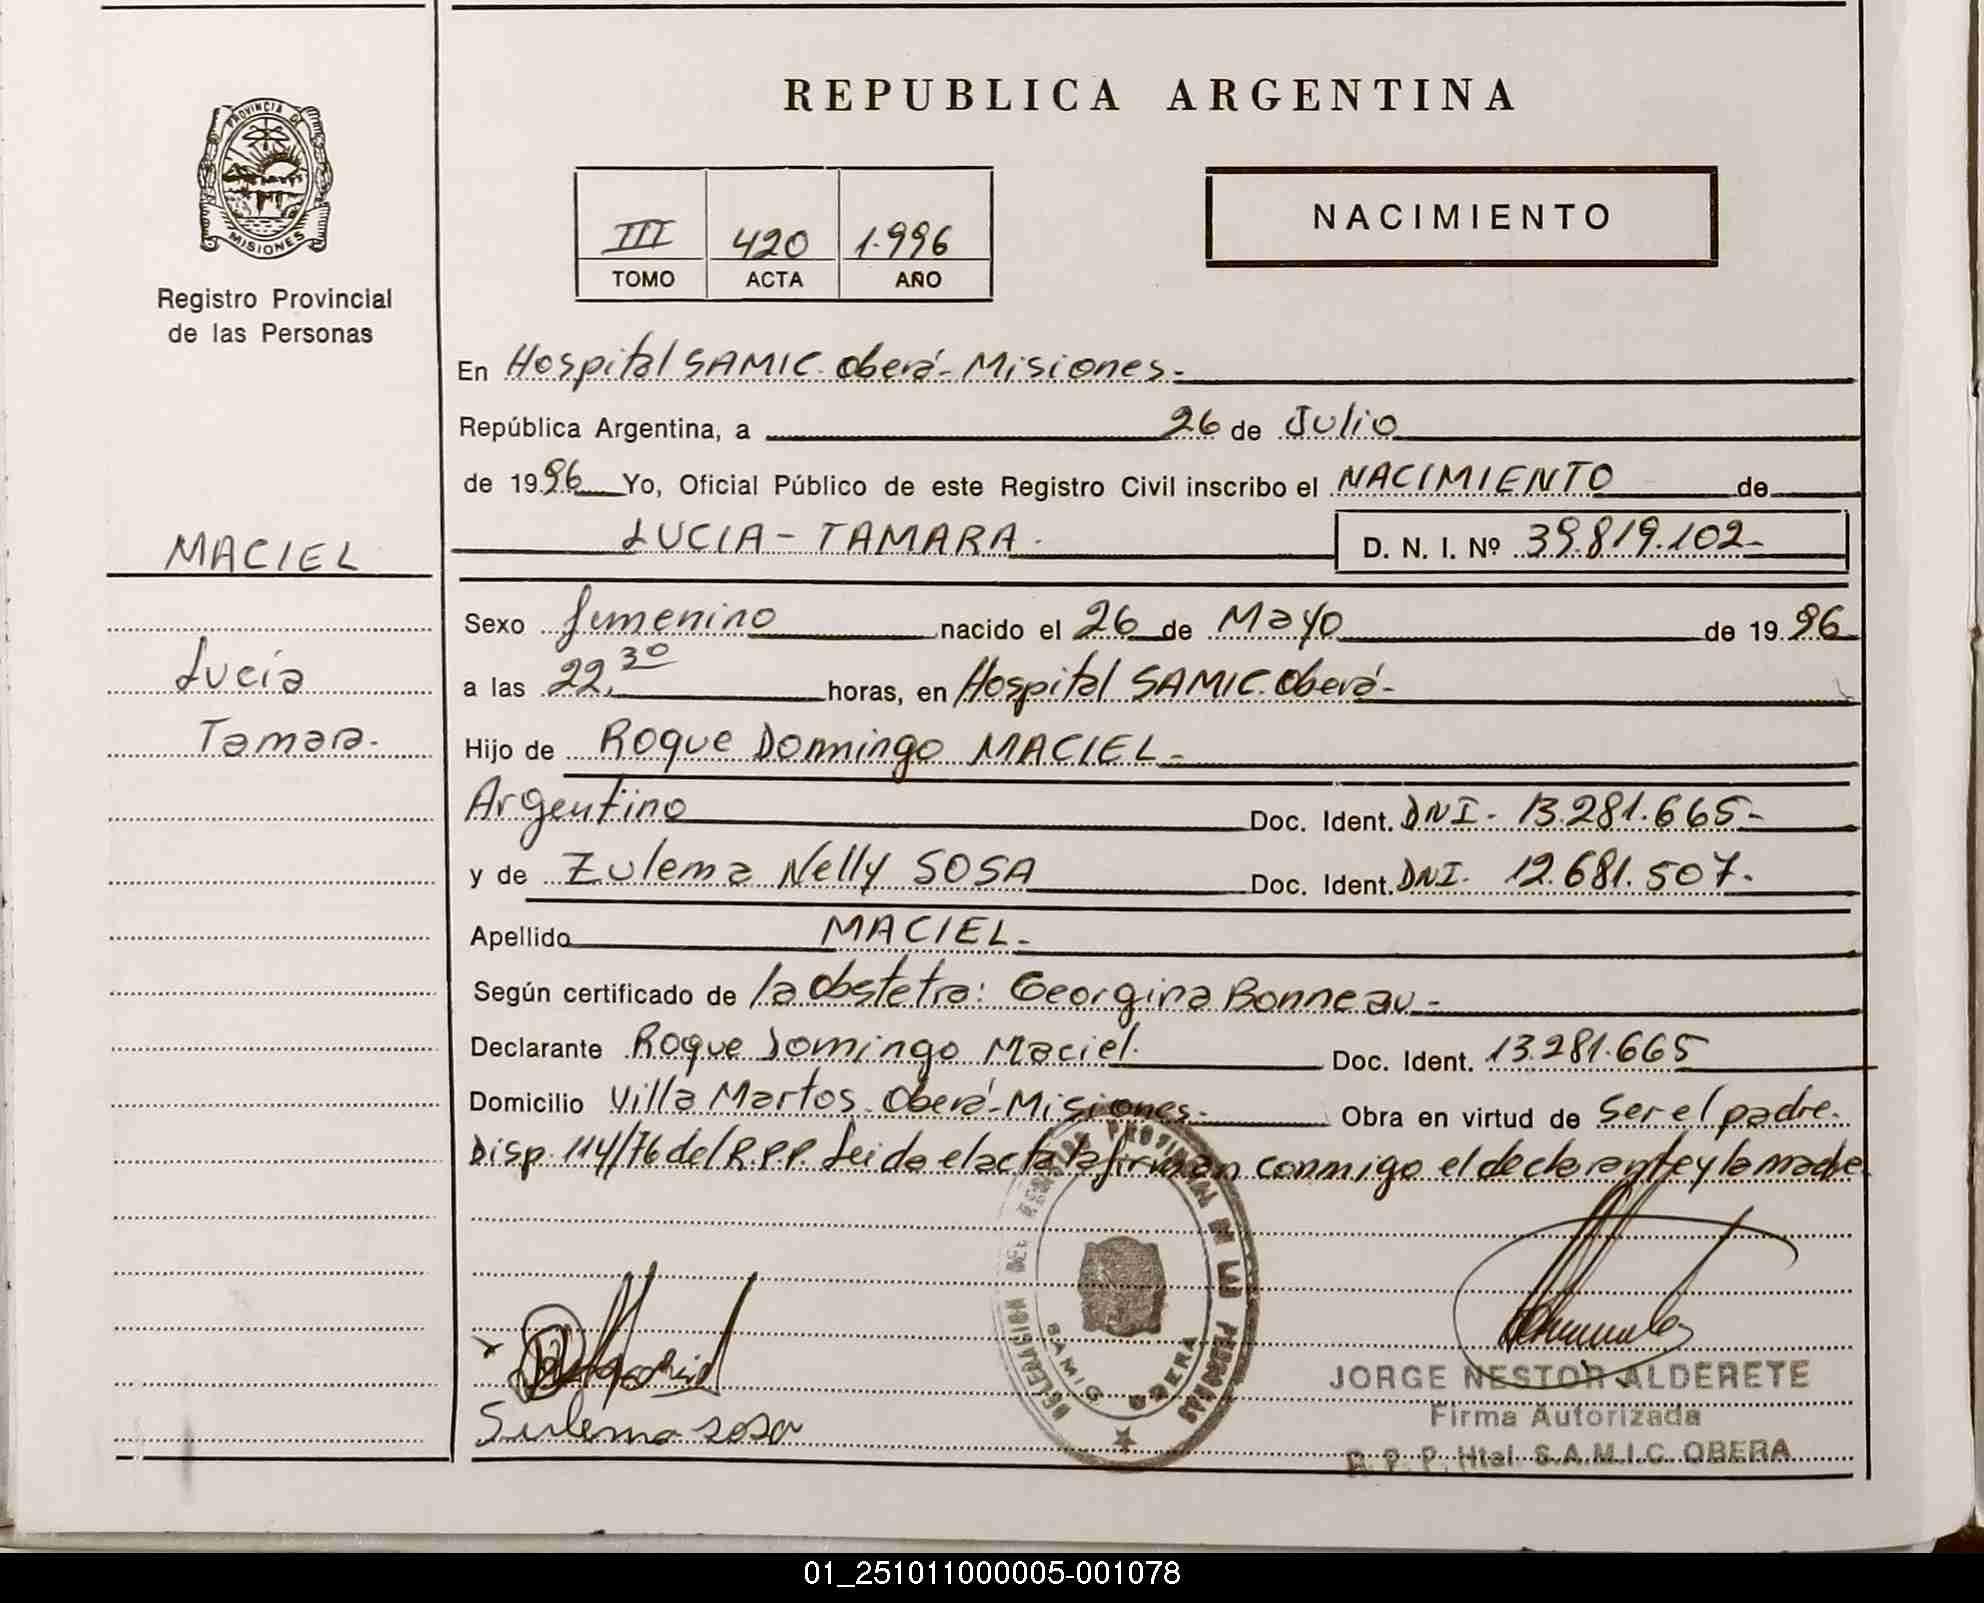 REPUBLICA ARGENTINA
PROVINCIA DE
MISIONES
Registro Provincial
de las Personas
III 420 1.996
TOMO ACTA AÑO
NACIMIENTO
En Hospital SAMIC. Oberá - Misiones.-
República Argentina, a 26 de Julio
de 1996 Yo, Oficial Público de este Registro Civil inscribo el NACIMIENTO de
LUCIA - TAMARA. D. N. I. Nº 39.819.102-
MACIEL
Lucía
Tamara.
Sexo femenino nacido el 26 de Mayo de 1996
a las 22,30 horas, en Hospital SAMIC. Oberá-
Hijo de Roque Domingo MACIEL-
Argentino Doc. Ident. DNI- 13.281.665-
y de Zulema Nelly SOSA Doc. Ident. DNI- 12.681.507-
Apellido MACIEL-
Según certificado de la Obstetra: Georgina Bonneau-
Declarante Roque Domingo Maciel. Doc. Ident. 13.281.665
Domicilio Villa Martos. Oberá-Misiones.- Obra en virtud de Ser el padre.
Disp. 114/76 del R.P.P. Leida el acta la firman conmigo el declarante y la madre.
DELEGACION DEL REGISTRO PROVINCIAL DE LAS PERSONAS
SAMIC OBERA
Sulema sosa
JORGE NESTOR ALDERETE
Firma Autorizada
R. P. P. Htal. S.A.M.I.C. OBERA
01_251011000005-001078